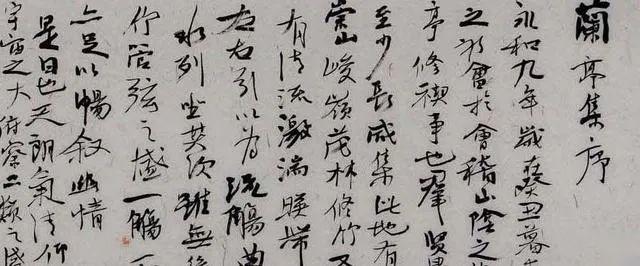 蘭亭集序
永和九年歲在癸丑暮
之初會於會稽山陰之
亭修禊事也羣賢
至少長咸集此地有
崇山峻嶺茂林修竹又
有清流激湍暎帶
左右引以為流觴曲
水列坐其次雖無絲
竹管弦之盛一觴一
亦足以暢叙幽情
是日也天朗氣清仰
宇宙之大俯察品類之盛